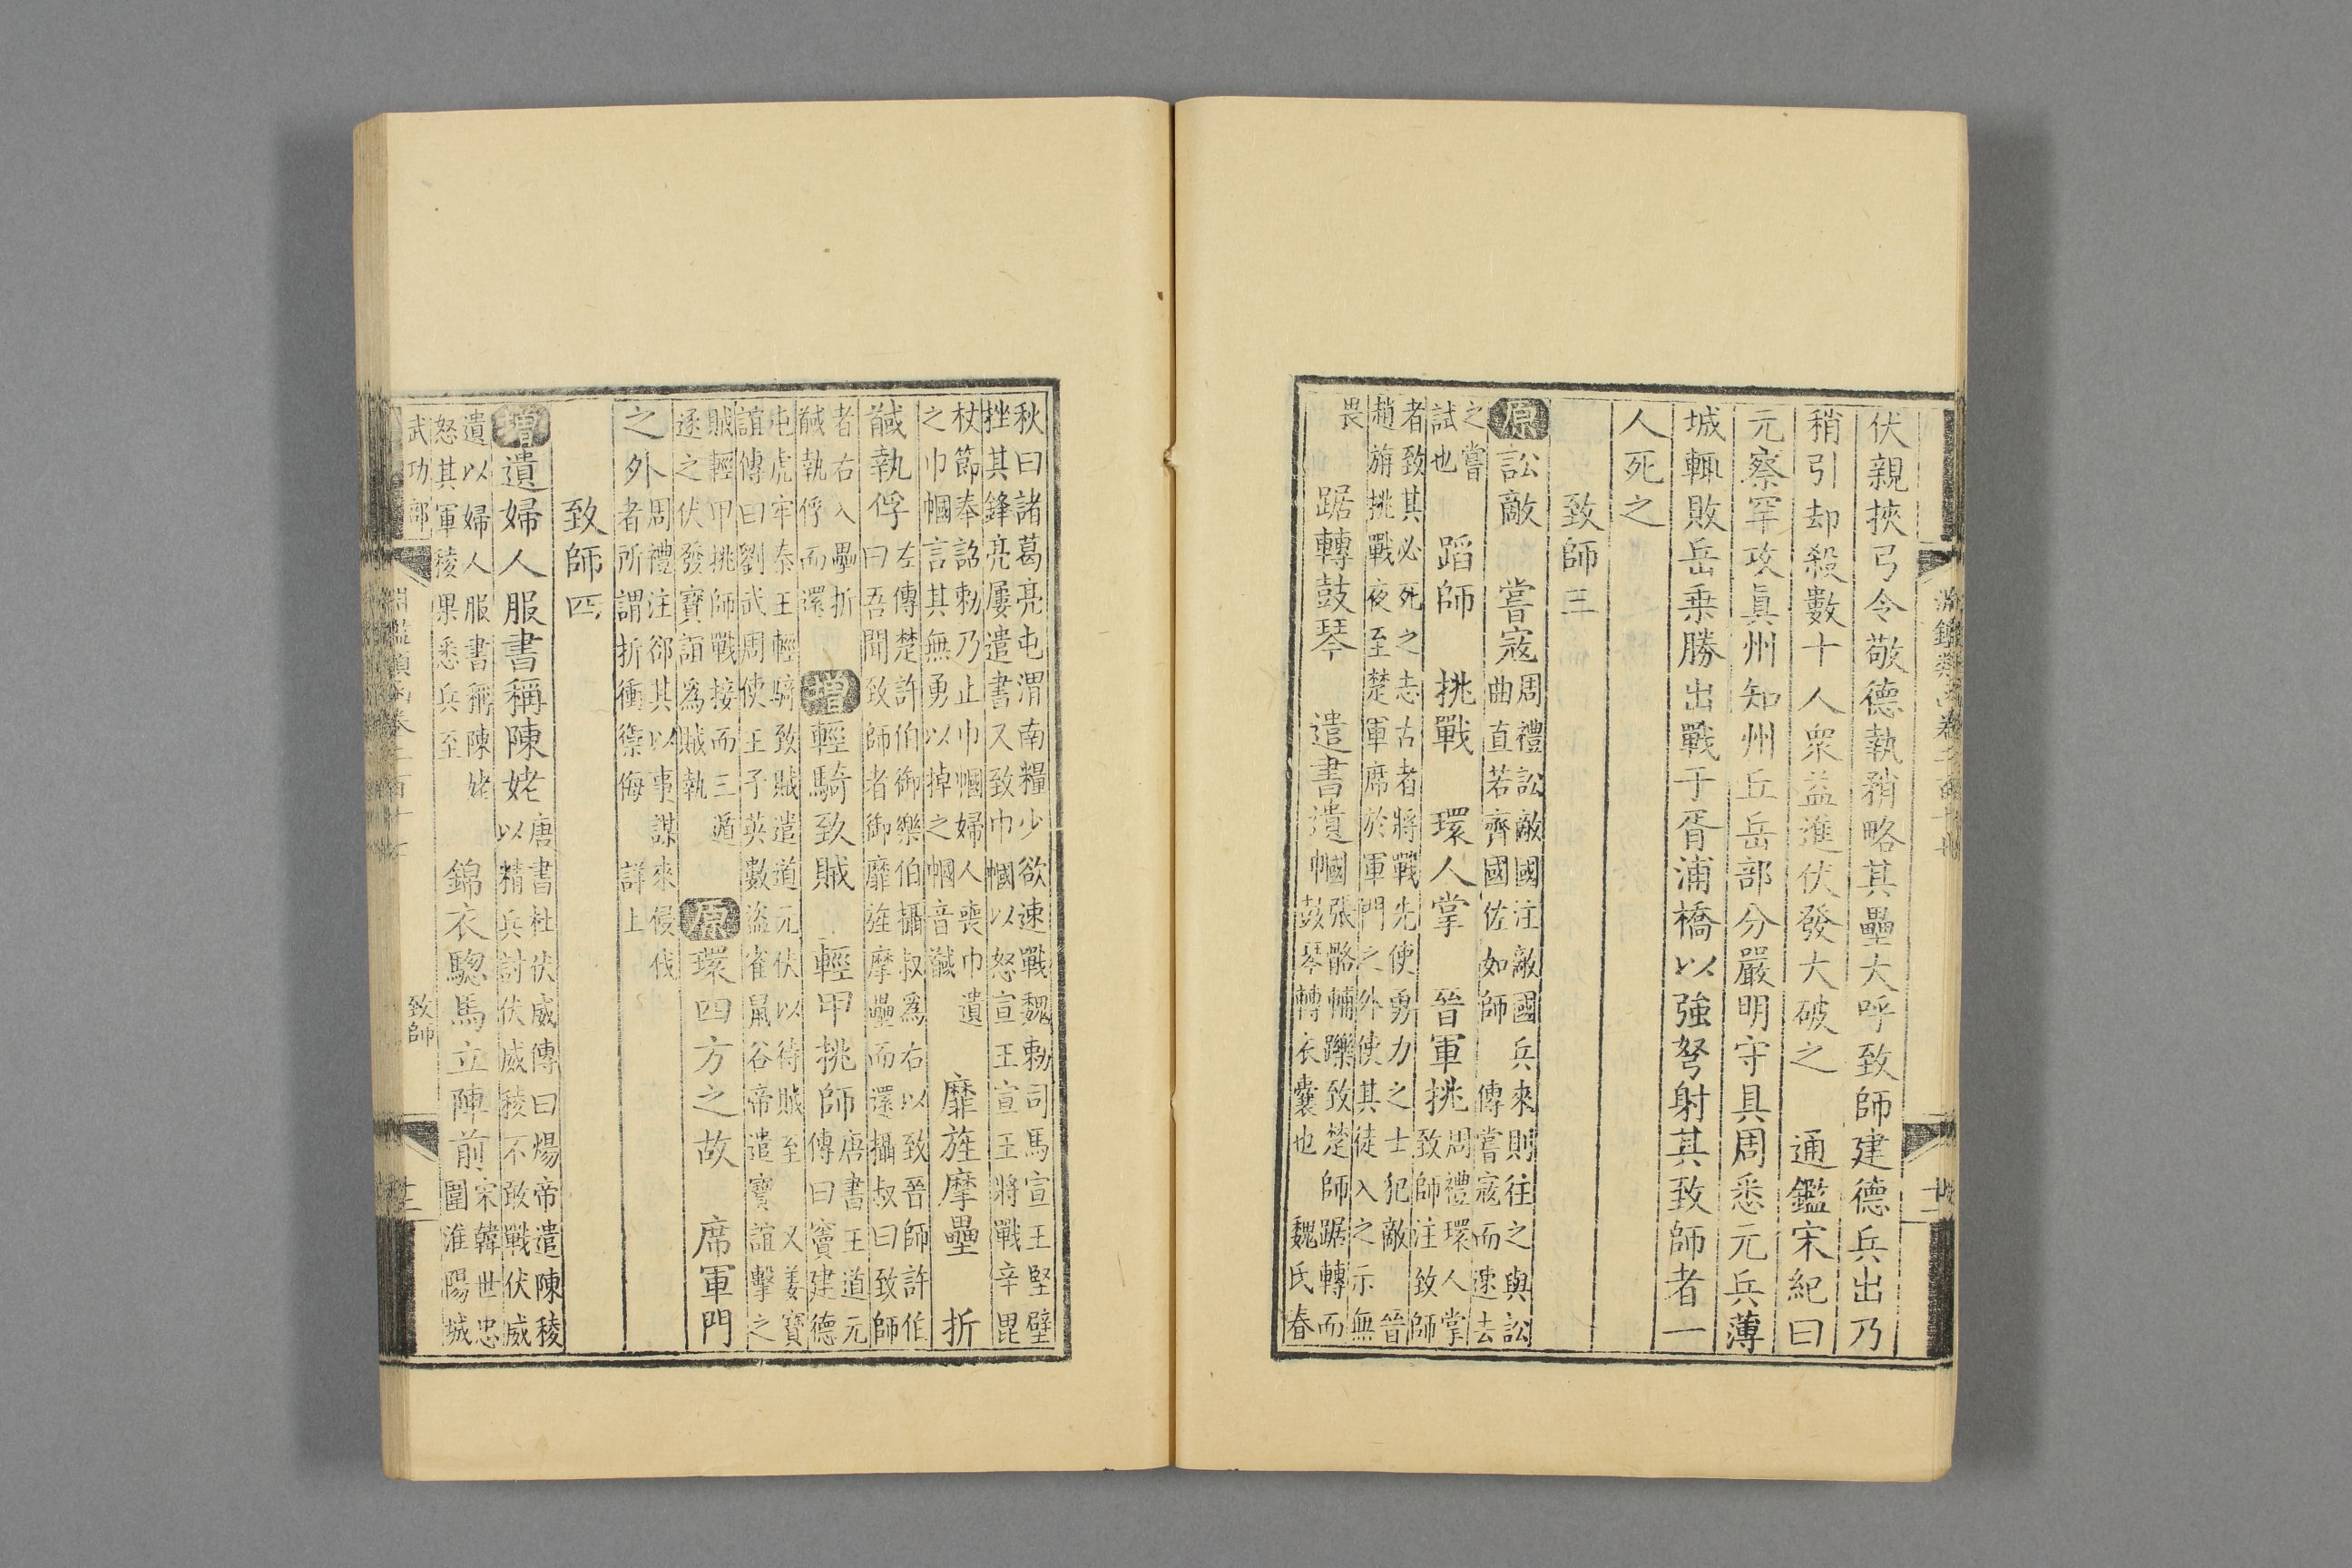 伏親挾弓令敬德執矟略其壘大呼致師建德兵出乃
稍引却殺數十人衆益進伏發大破之　通鑑宋紀曰
元察罕攻眞州知州丘岳部分嚴明守具周悉元兵薄
城輒敗岳乗勝出戰于胥浦橋以強弩射其致師者一
人死之
致師三
原訟敵　嘗寇
周禮訟敵國注敵國兵來則往之與訟
曲直若齊國佐如師　傳嘗寇而速去
之嘗
試也
蹈師　挑戰　環人掌　晉軍挑
周禮環人掌
致師注致師
者致其必死之志古者將戰先使勇力之士犯敵　晉
趙旃挑戰夜至楚軍席於軍門之外使其徒入之示無
畏
踞轉鼓琴　遣書遺幗
張骼輔躒致楚師踞轉而
鼓琴轉衣囊也　魏氏春
秋曰諸葛亮屯渭南糧少欲速戰魏勅司馬宣王堅壁
挫其鋒亮屢遣書又致巾幗以怒宣王宣王將戰辛毘
杖節奉詔勅乃止巾幗婦人喪巾遺
之巾幗言其無勇以掉之幗音馘
靡旌摩壘　折
馘執俘
左傳楚許伯御樂伯攝叔爲右以致晉師許伯
曰吾聞致師者御靡旌摩壘而還攝叔曰致師
者右入壘折
馘執俘而還
增輕騎致賊　輕甲挑師
唐書王道元
傳曰竇建德
屯虎牢秦王輕騎致賊遣道元伏以待賊至　又姜寶
誼傳曰劉武周使王子英數盜雀鼠谷帝遣寶誼擊之
賊輕甲挑師戰接而三遁
逐之伏發寶誼爲賊執
原環四方之故　席軍門
之外
周禮注郤其以事謀來侵伐
者所謂折衝禦侮　詳上
致師四
增遺婦人服書稱陳姥
唐書杜伏威傳曰煬帝遣陳稜
以精兵討伏威稜不敢戰伏威
遺以婦人服書稱陳姥
怒其軍稜果悉兵至
錦衣驄馬立陣前
宋韓世忠
圍淮陽城
武功部
致師